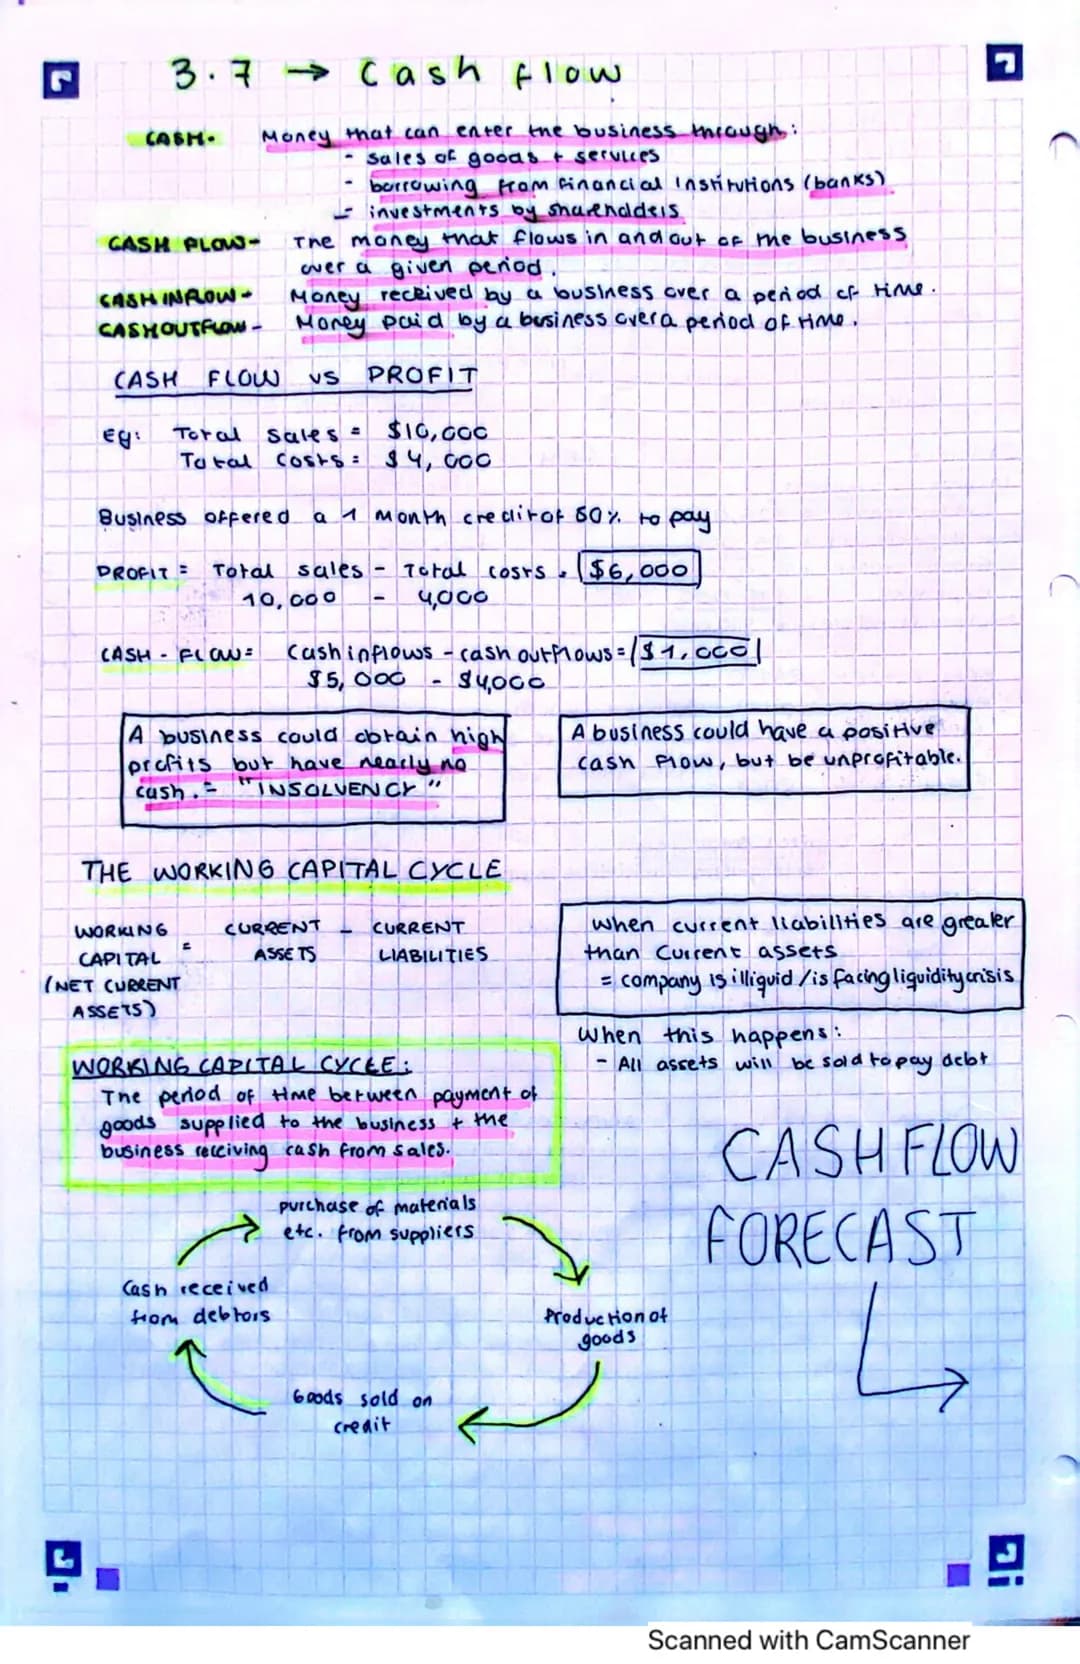 3.7 → Cash flow
CASH- Money that can enter the business through:
- sales of goods + services
- borrowing from financial institutions (banks)
- investments by shareholders
CASH FLOW- The money that flows in and out of the business
over a given period.
CASH INFLOW- Money received by a business over a period of time.
CASH OUTFLOW- Money paid by a business over a period of time.
CASH FLOW VS PROFIT
Eg: Total sales = $10,000
Total costs = $4,000
Business offered a 1 month credit of 50% to pay
PROFIT = Total sales - Total costs = $6,000
10,000 - 4,000
CASH-FLOW= Cash inflows - cash outflows = $1,000
$5,000 - $4,000
A business could obtain high
profits but have nearly no
cash. = "INSOLVENCY"
A business could have a positive
cash flow, but be unprofitable.
THE WORKING CAPITAL CYCLE
WORKING CAPITAL (NET CURRENT ASSETS) = CURRENT ASSETS - CURRENT LIABILITIES
When current liabilities are greater
than current assets
= company is illiquid / is facing liquidity crisis
When this happens:
- All assets will be sold to pay debt
WORKING CAPITAL CYCLE:
The period of time between payment of
goods supplied to the business + the
business receiving cash from sales.
CASH FLOW
FORECAST
purchase of materials
etc. from suppliers
Production of
goods
Goods sold on
credit
Cash received
from debtors
Scanned with CamScanner